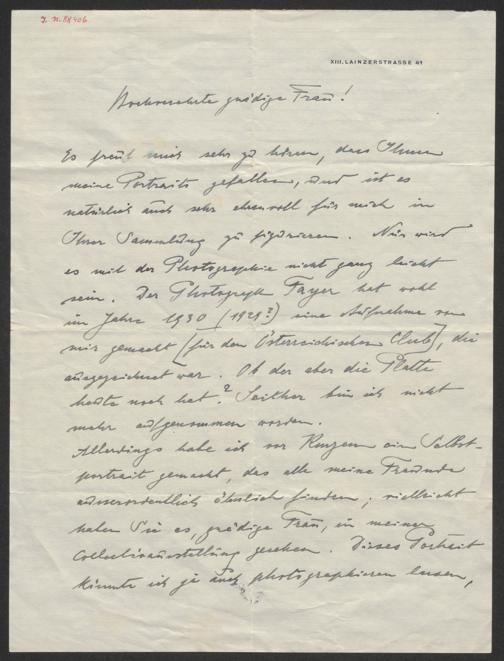 J. N. RH 406
XIII, LAINZERSTRASSE 41
Hochverehrte gnädige Frau!
Es freut mich sehr zu hören, dass Ihnen
meine Portraits gefallen, und ist es
natürlich auch sehr ehrenvoll für mich in
Ihrer Sammlung zu figurieren. Nur wird
es mit der Photographie nicht ganz leicht
sein. Der Photograph Fayer hat wohl
im Jahre 1930 (1929?) eine Aufnahme von
mir gemacht [für den Österreichischen Club], die
ausgezeichnet war. Ob der aber die Platte
heute noch hat? Seither bin ich nicht
mehr aufgenommen worden.
Allerdings habe ich vor Kurzem ein Selbst-
portrait gemacht, das alle meine Freunde
ausserordentlich ähnlich finden; vielleicht
haben Sie es, gnädige Frau, in meiner
Collectivausstellung gesehen. Dieses Portrait
könnte ich ja auch photographieren lassen,